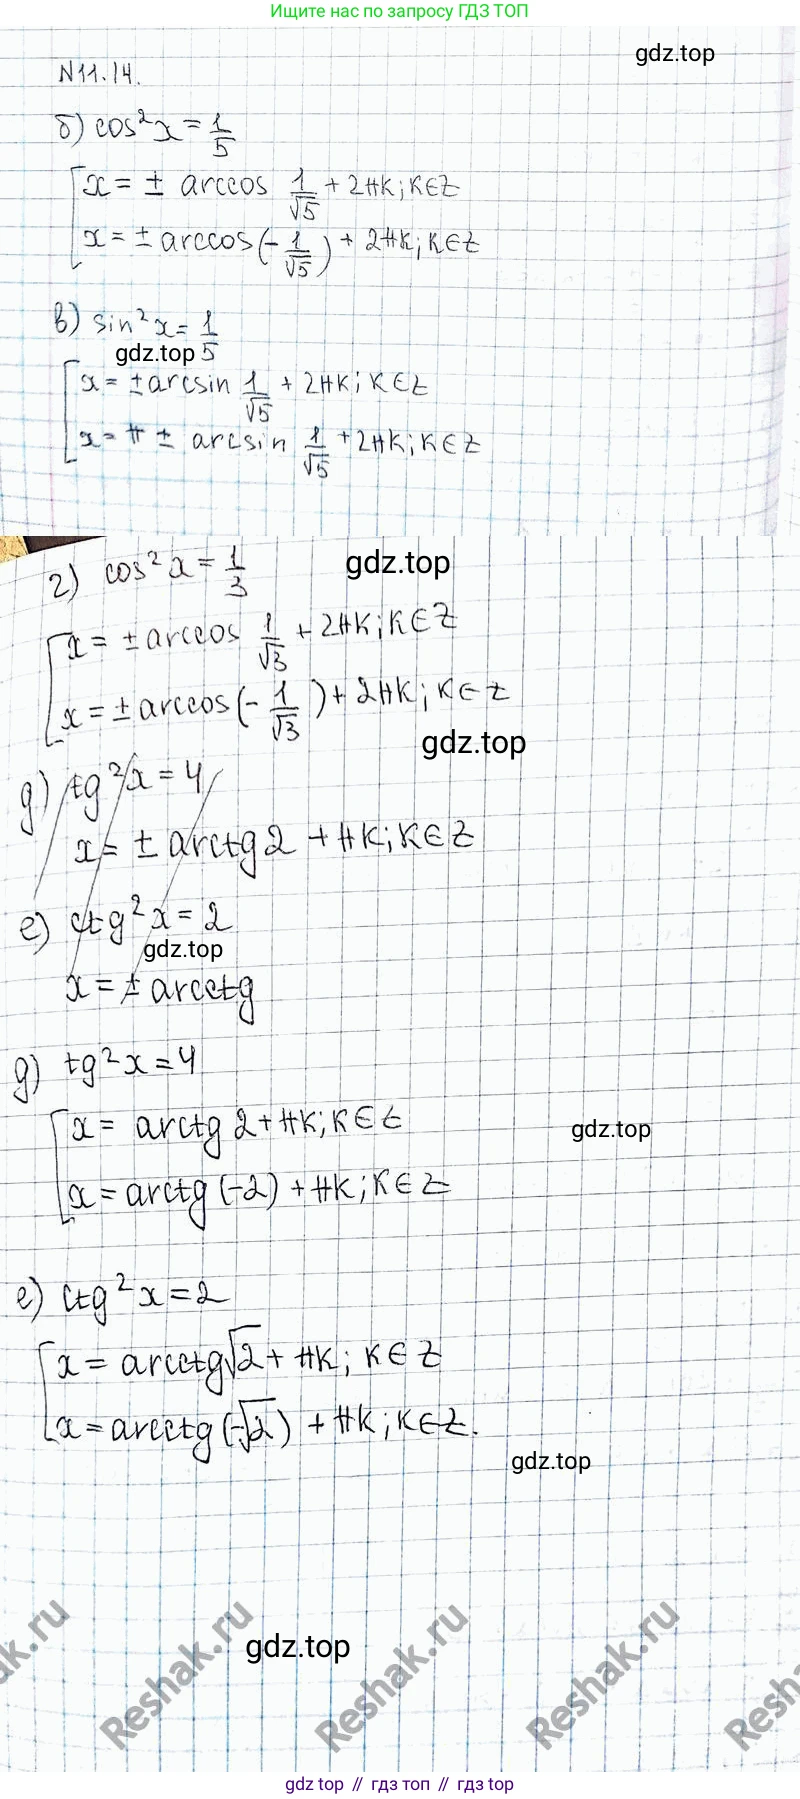 Ищите нас по запросу ГДЗ ТОП
gdz.top
N11.14.
б) cos²x = 1/5
x = ± arccos 1/√5 + 2πK; K∈Z
x = ± arccos(-1/√5) + 2πK; K∈Z
в) sin²x = 1/5
gdz.top
x = ± arcsin 1/√5 + 2πK; K∈Z
x = π ± arcsin 1/√5 + 2πK; K∈Z
г) cos²x = 1/3
gdz.top
x = ± arccos 1/√3 + 2πK; K∈Z
x = ± arccos(-1/√3) + 2πK; K∈Z
gdz.top
д) tg²x = 4
x = ± arctg 2 + πK; K∈Z
е) ctg²x = 2
gdz.top
x = ± arcctg
д) tg²x = 4
x = arctg 2 + πK; K∈Z
gdz.top
x = arctg (-2) + πK; K∈Z
е) ctg²x = 2
x = arcctg √2 + πK; K∈Z
x = arcctg (-√2) + πK; K∈Z.
gdz.top
gdz.top
Reshak.ru Reshak.ru Reshak.ru Reshak.ru
gdz top // гдз топ // гдз топ